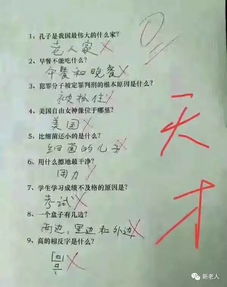 1、孔子是我国最伟大的什么家?
老人家
2、早餐不能吃什么?
午餐和晚餐
3、犯罪分子被定罪判刑的根本原因是什么?
被抓住
4、美国自由女神像位于哪里?
美国
5、比细菌还小的是什么?
细菌的儿子
6、用什么擦地最干净?
用力
7、学生学习成绩不及格的原因是什么?
考试
8、一个盒子有几边?
两边,里边和外边
9、高的相反字是什么?
0
天
才
新老人